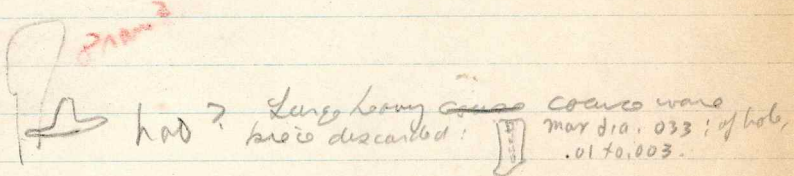 had? Large heavy coarse coarse ware
piece discarded: max dia. 033; of hole,
.01 to .003.